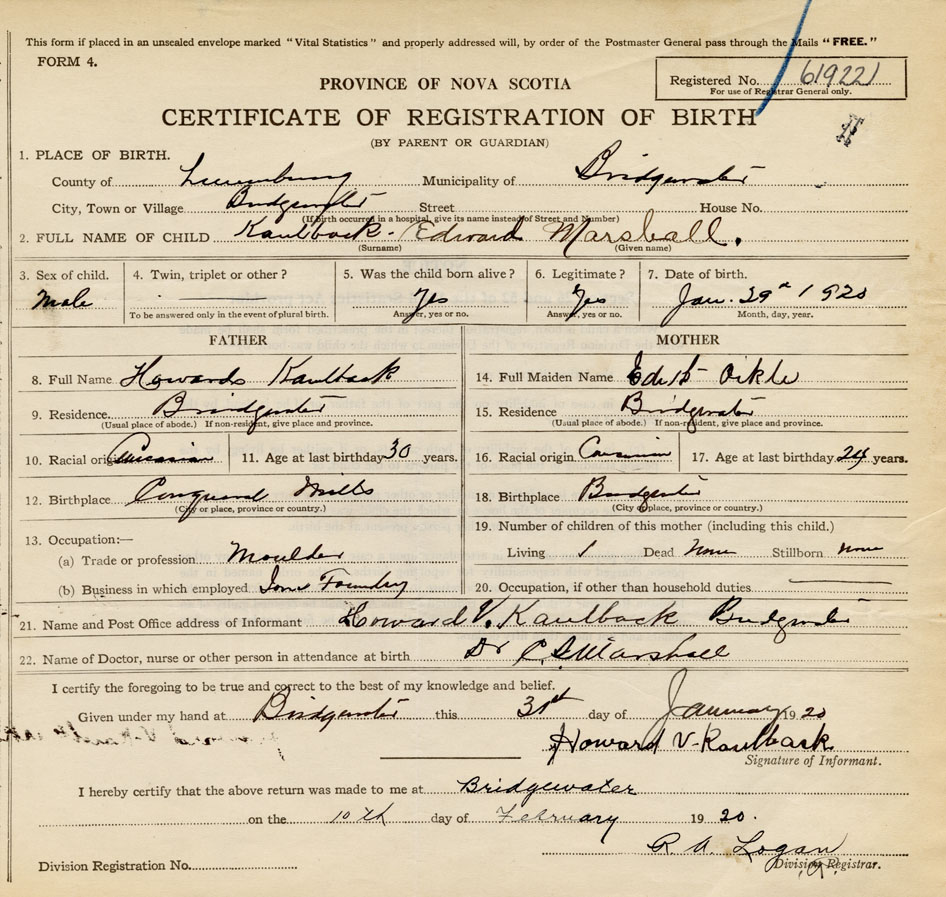 This form if placed in an unsealed envelope marked "Vital Statistics" and properly addressed will, by order of the Postmaster General pass through the Mails "FREE."
FORM 4.
Registered No. 619221
For use of Registrar General only.
PROVINCE OF NOVA SCOTIA
CERTIFICATE OF REGISTRATION OF BIRTH
(BY PARENT OR GUARDIAN)
1. PLACE OF BIRTH.
County of Lunenburg Municipality of Bridgewater
City, Town or Village Bridgewater Street House No.
(If birth occurred in a hospital, give its name instead of Street and Number)
2. FULL NAME OF CHILD Kaulback. Edward Marshall.
(Surname) (Given name)
3. Sex of child. 4. Twin, triplet or other? 5. Was the child born alive? 6. Legitimate? 7. Date of birth.
Male Yes Yes Jan. 29th 1920
To be answered only in the event of plural birth. Answer, yes or no. Answer, yes or no. Month, day, year.
FATHER MOTHER
8. Full Name Howards Kaulback 14. Full Maiden Name Edith Oikle
9. Residence Bridgewater 15. Residence Bridgewater
(Usual place of abode.) If non-resident, give place and province. (Usual place of abode.) If non-resident, give place and province.
10. Racial origin Caucasian 11. Age at last birthday 30 years. 16. Racial origin 17. Age at last birthday 24 years.
12. Birthplace Conquerall Mills 18. Birthplace Bridgewater
(City or place, province or country.) (City or place, province or country.)
13. Occupation:— 19. Number of children of this mother (including this child.)
(a) Trade or profession Moulder Living 1 Dead None Stillborn none
(b) Business in which employed Iron Foundry 20. Occupation, if other than household duties
21. Name and Post Office address of Informant Howard V. Kaulback Bridgewater
22. Name of Doctor, nurse or other person in attendance at birth Dr C S Marshall
I certify the foregoing to be true and correct to the best of my knowledge and belief.
Given under my hand at Bridgewater this 31st day of January 1920
Howard V. Kaulback
Signature of Informant.
I hereby certify that the above return was made to me at Bridgewater
on the 10th day of February 1920.
R. A. Logan
Division Registration No. Division Registrar.